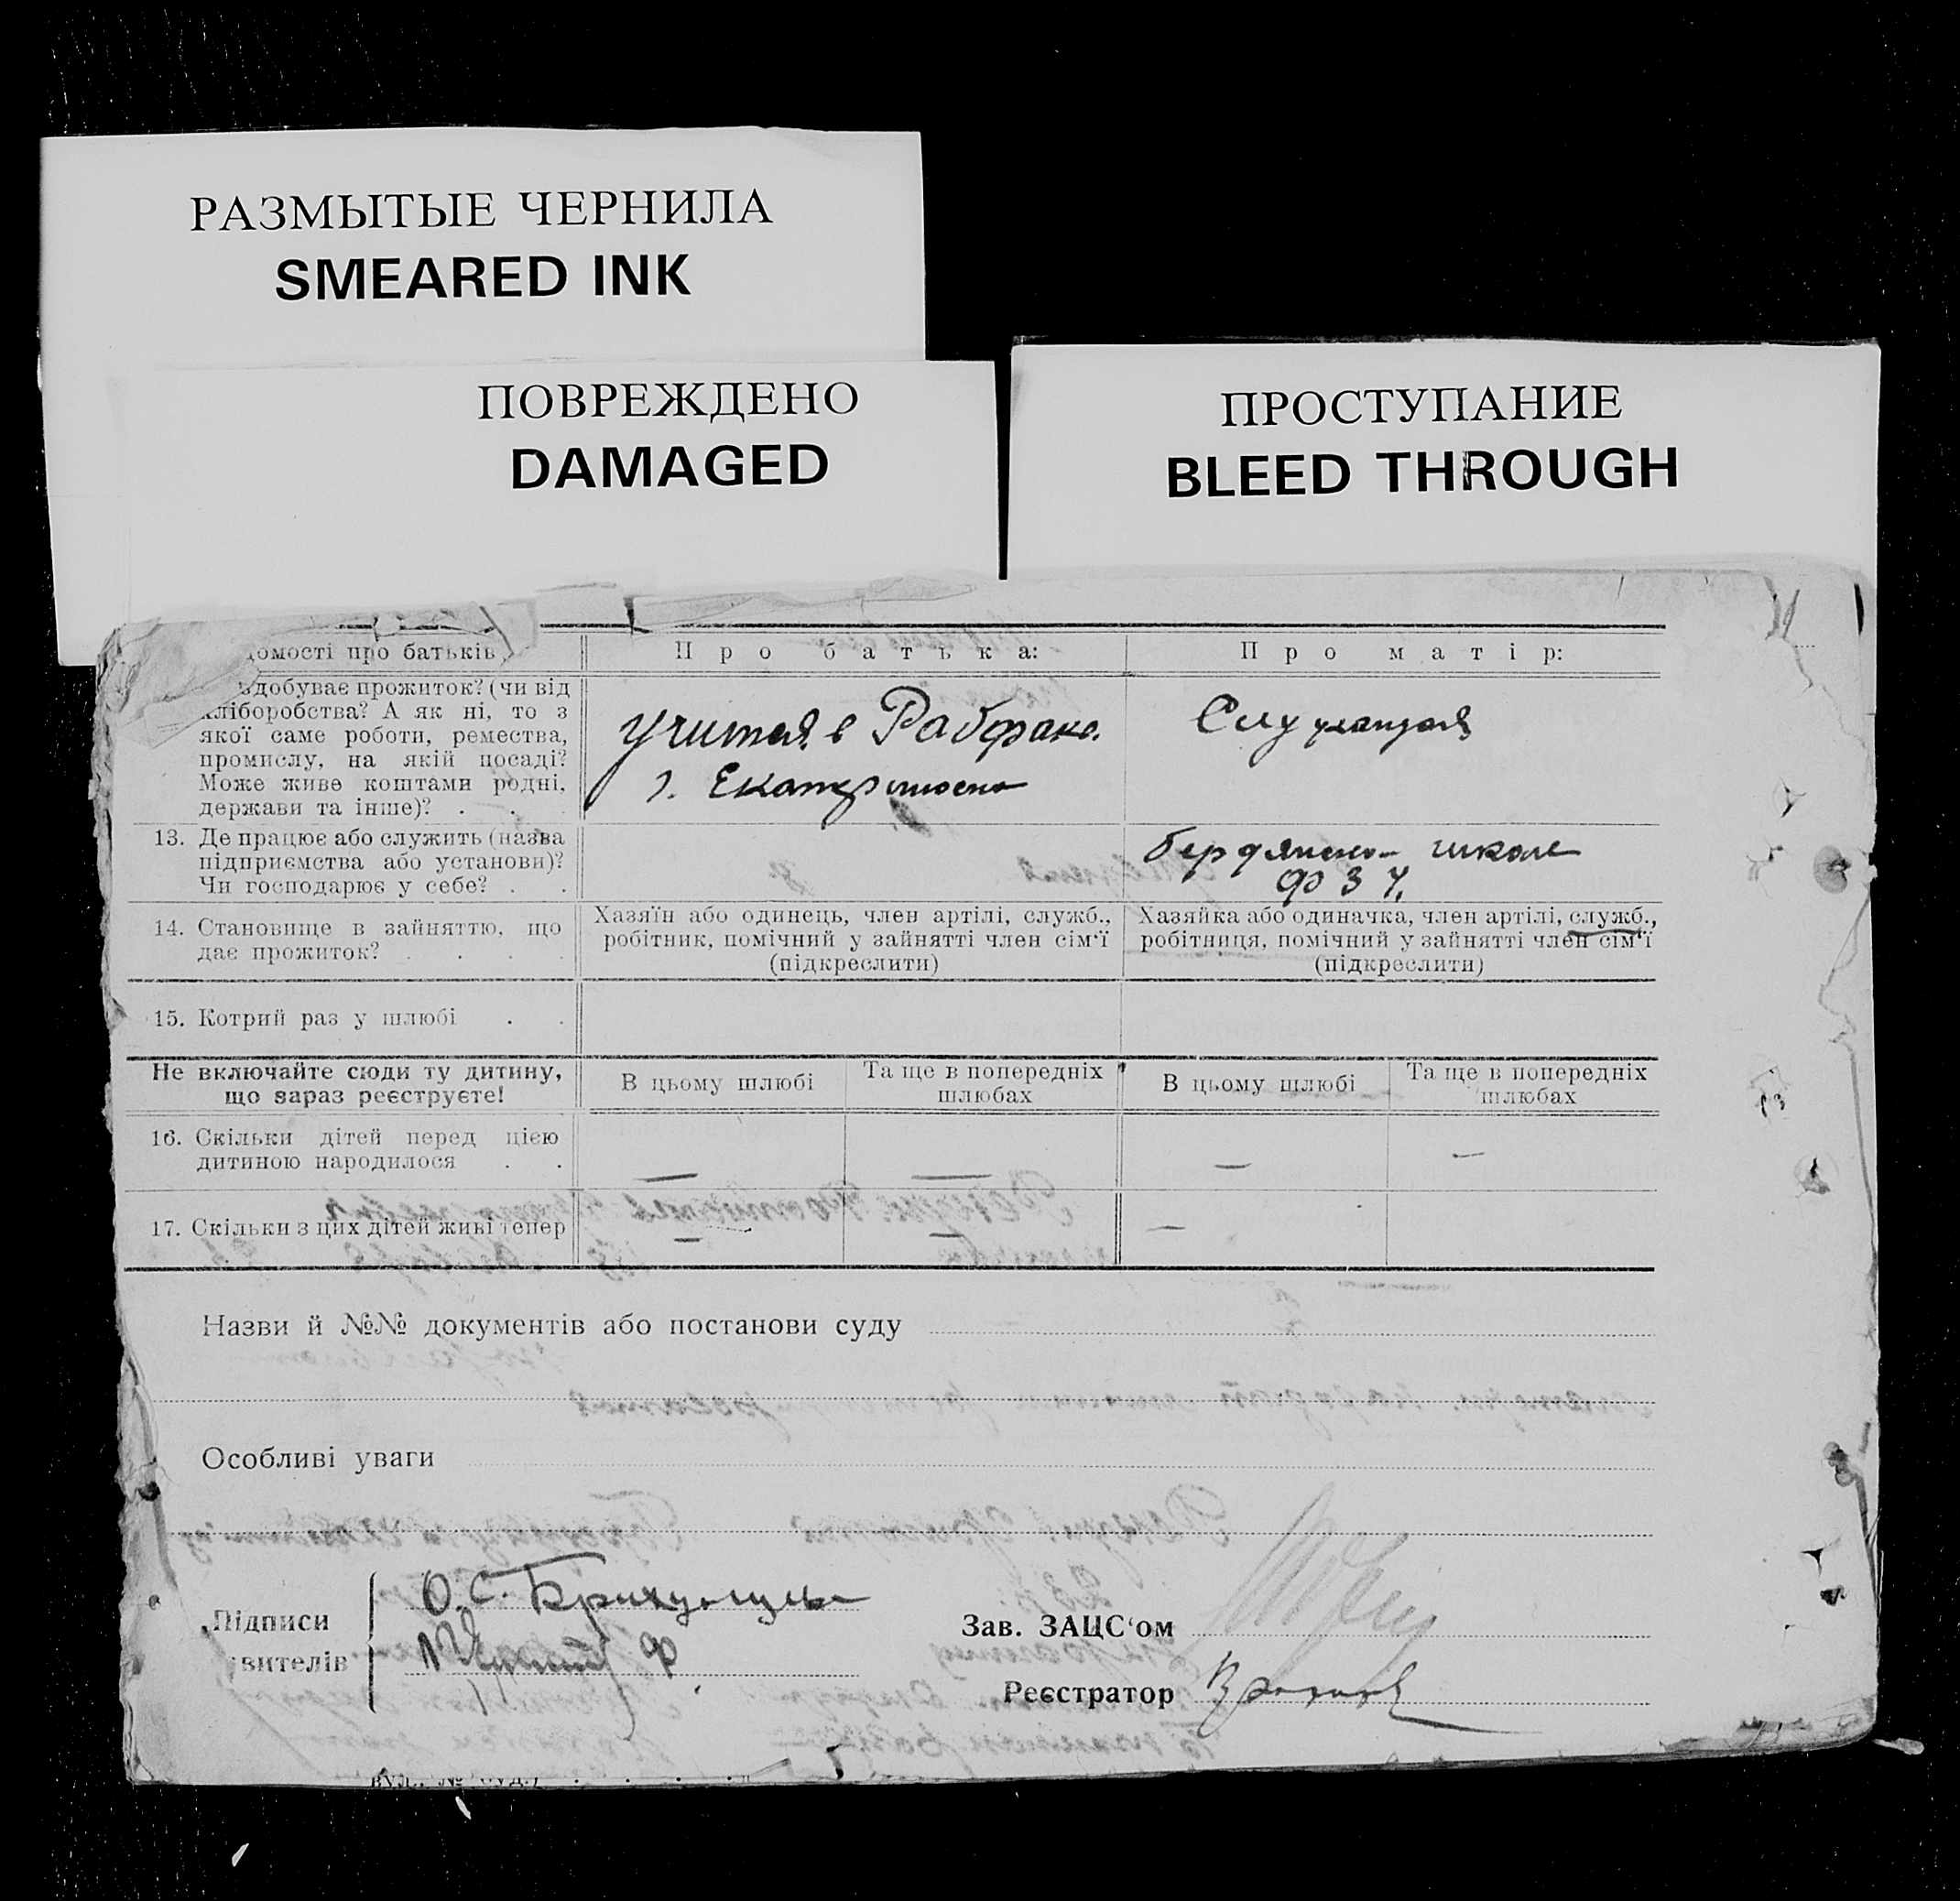 РАЗМЫТЫЕ ЧЕРНИЛА
SMEARED INK
ПОВРЕЖДЕНО
DAMAGED
ПРОСТУПАНИЕ
BLEED THROUGH
домості про батьків
Про батька:
Про матір:
здобуває прожиток? (чи від
хліборобства? А як ні, то з
якої саме роботи, ремества,
промислу, на якій посаді?
Може живе коштами родні,
держави та інше)? . .
в Рабфаке.
г.
Служащая
13. Де працює або служить (назва
підприємства або установи)?
Чи господарює у себе? . .
школе
ФЗУ.
14. Становище в зайняттю, що
дає прожиток? . . . .
Хазяїн або одинець, член артілі, служб.,
робітник, помічний у зайнятті член сім'ї
(підкреслити)
Хазяйка або одиначка, член артілі, служб.,
робітниця, помічний у зайнятті член сім'ї
(підкреслити)
15. Котрий раз у шлюбі . .
Не включайте сюди ту дитину,
що зараз реєструєте!
В цьому шлюбі
Та ще в попередніх
шлюбах
В цьому шлюбі
Та ще в попередніх
шлюбах
16. Скільки дітей перед цією
дитиною народилося . .
— — — —
17. Скільки з цих дітей живі тепер
— — —
Назви й №№ документів або постанови суду
Особливі уваги
Підписи
вителів
О.С.
Ф.
Зав. ЗАЦС'ом
Реєстратор
вул., № буд.)